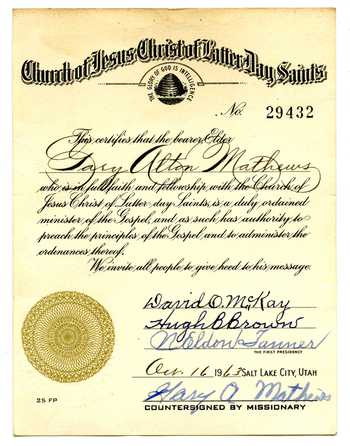 Church of Jesus Christ of Latter Day Saints
THE GLORY OF GOD IS INTELLIGENCE
No. 29432
This certifies that the bearer, Elder
Gary Alton Mathews
who is in full faith and fellowship with the Church of
Jesus Christ of Latter-day Saints, is a duly ordained
minister of the Gospel, and as such has authority to
preach the principles of the Gospel, and to administer the
ordinances thereof.
We invite all people to give heed to his message.
David O. McKay
Hugh B Brown
N Eldon Tanner
THE FIRST PRESIDENCY
Oct 16 1963 SALT LAKE CITY, UTAH
Gary A Mathews
25 FP
COUNTERSIGNED BY MISSIONARY